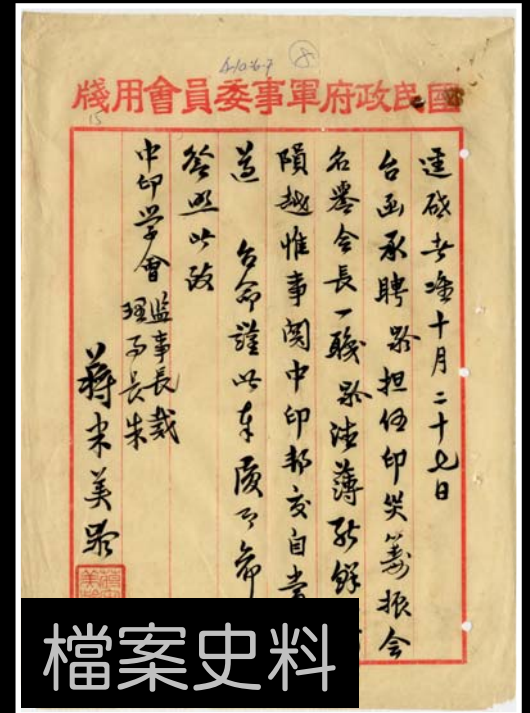 國民政府軍事委員會用牋
逕啟者准十月二十七日
台函承聘齡担任印災籌振会
名譽会長一職齡德薄能鮮
隕越惟事関中印邦交自當
遵 台命謹此奉復即希
答照此致
中印学會 監事長戴
理事長朱
蔣宋美齡
檔案史料